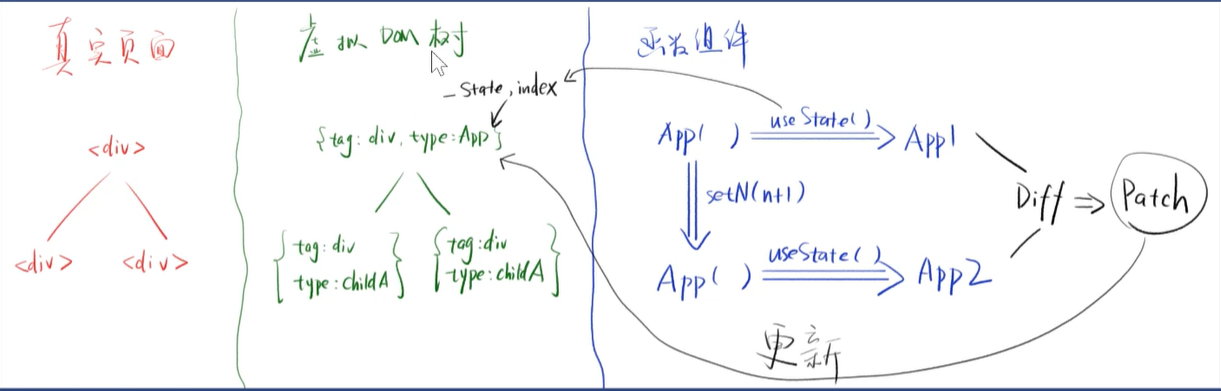 真实页面
<div>
<div> <div>
虚拟 DOM 树
_State, index
{tag: div, type: App}
{tag: div
type: childA}
{tag: div
type: childA}
函数组件
App( ) useState() App1
setN(n+1)
App( ) useState() App2
Diff ⇒ Patch
更新